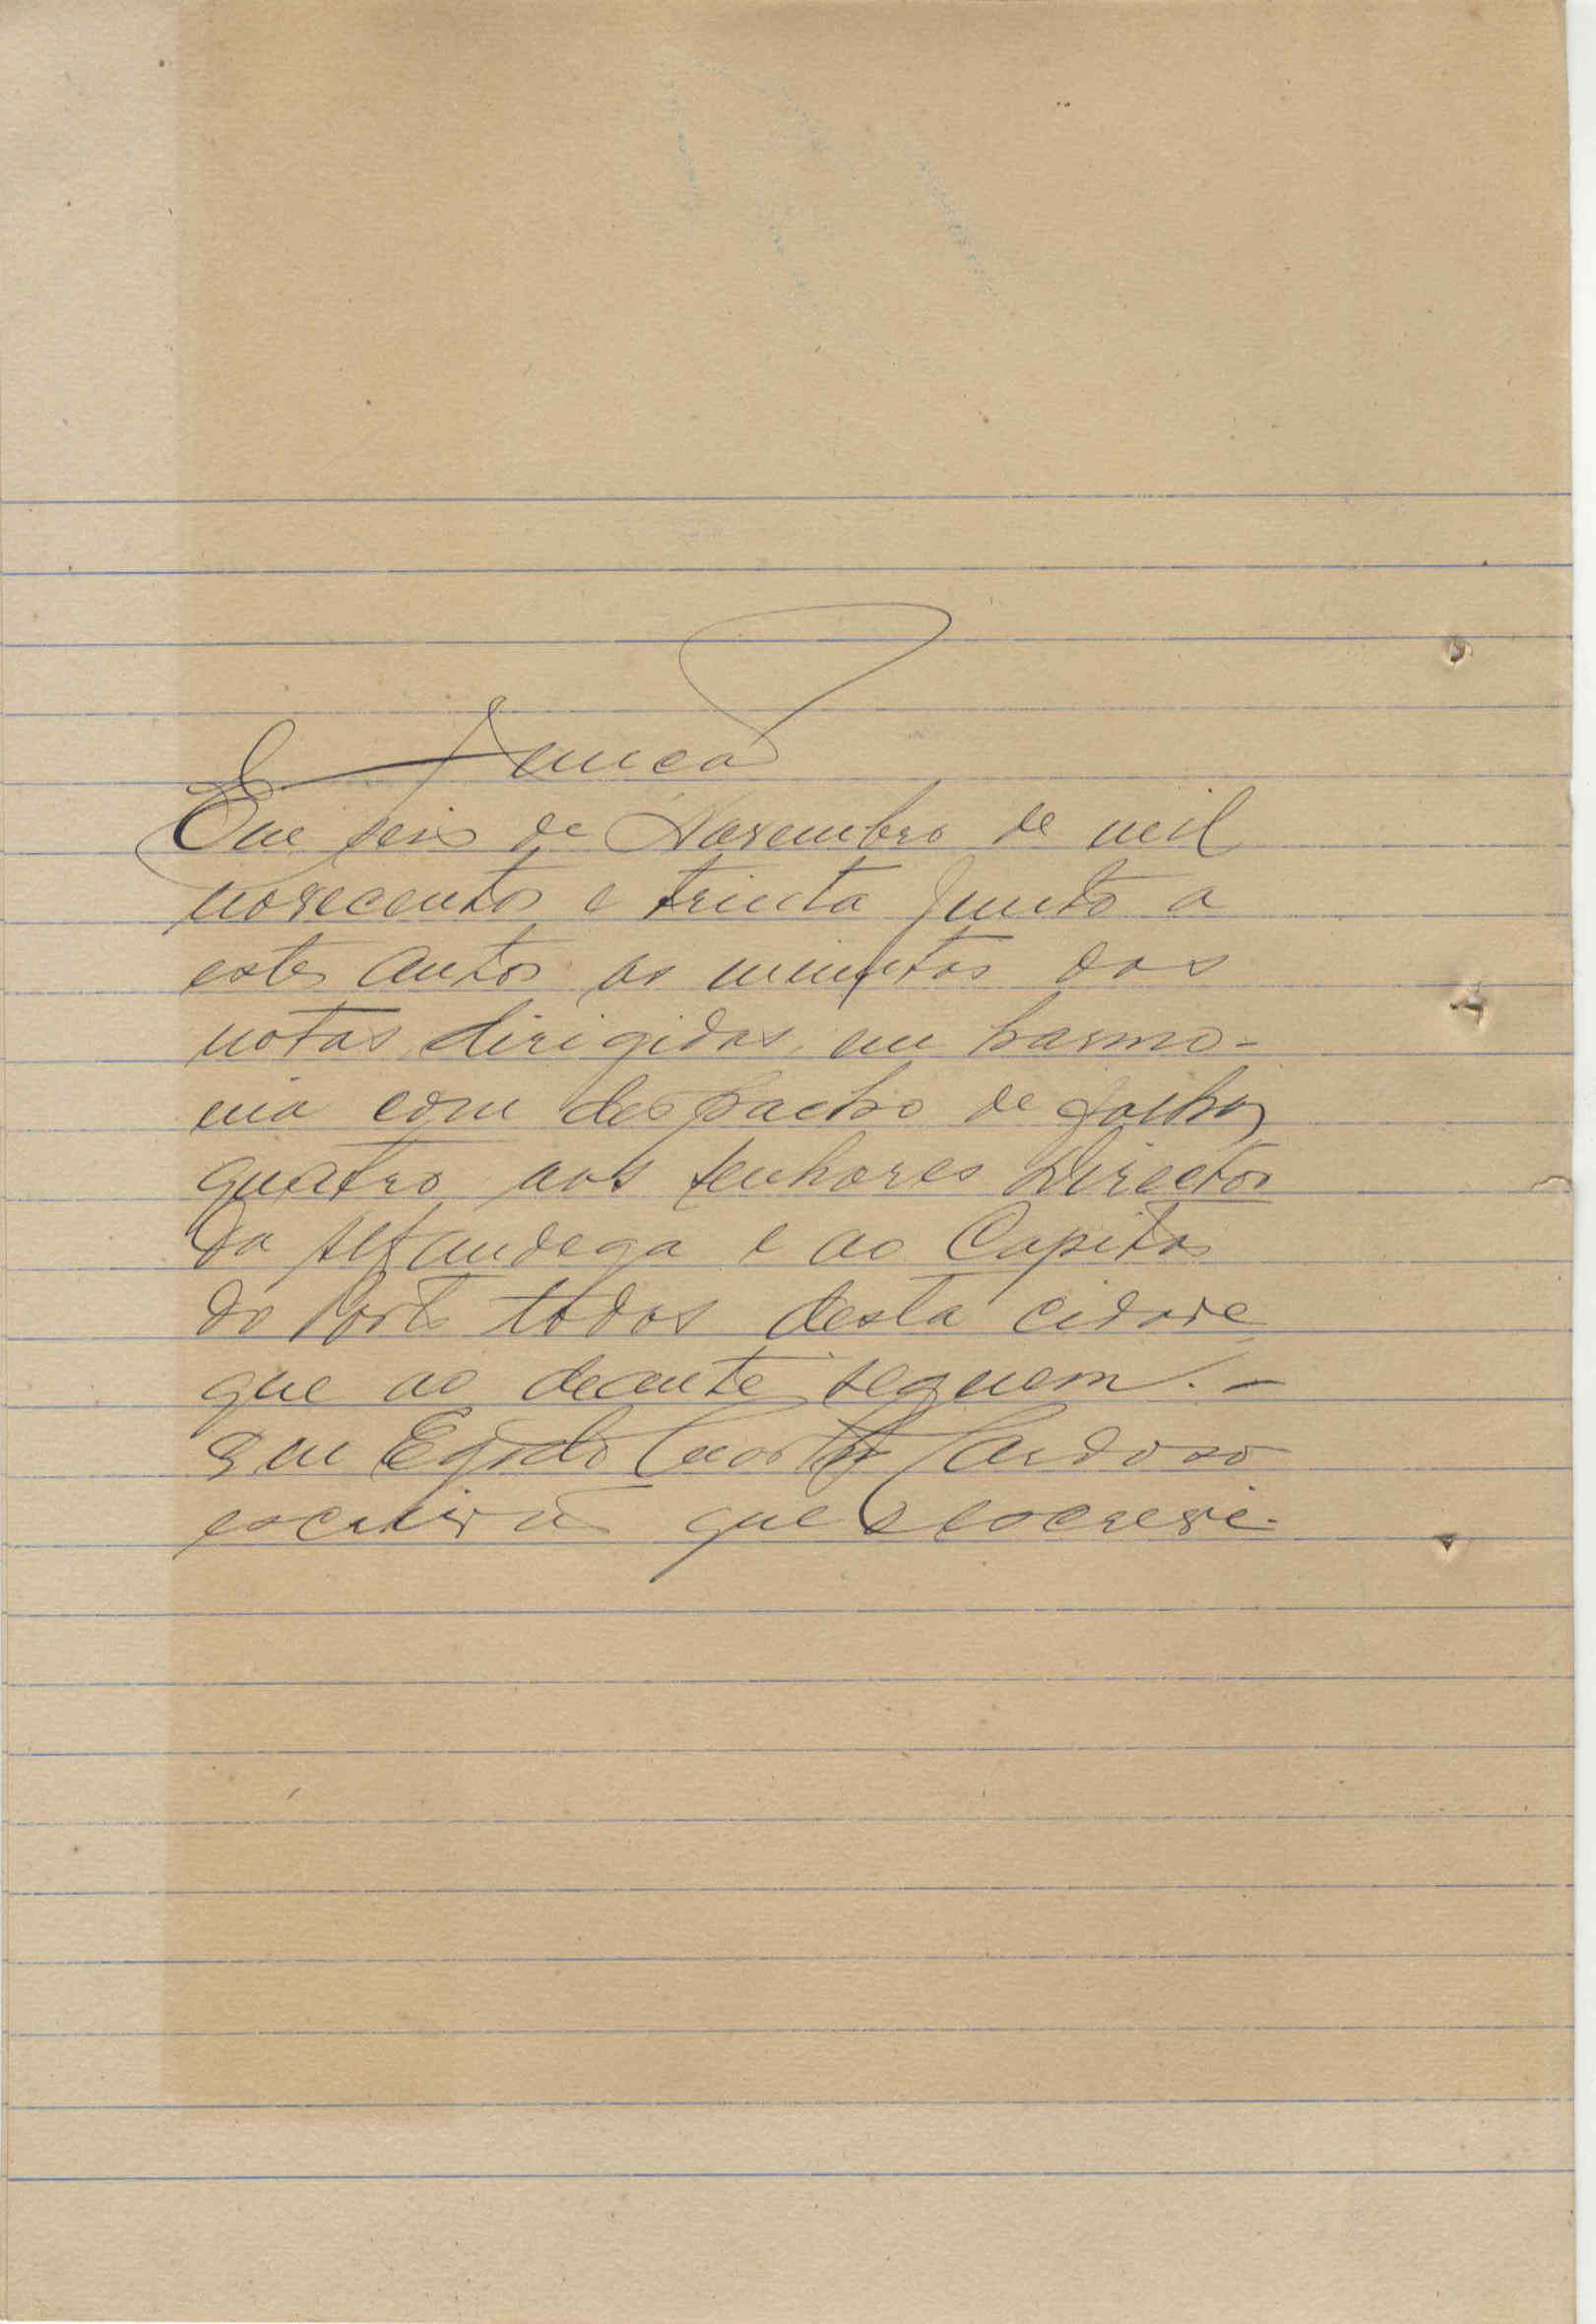 Junção
Em seis de Novembro de mil
novecentos e trinta junto a
estes autos as minutas das
notas dirigidas, em harmo-
nia com despacho de folhas
quatro aos senhores Director
da Alfandega e ao Capitão
do Porto todos desta cidade
que ao deante seguem. -
Eu Egydio Cardoso
escrivão que o escrevi.